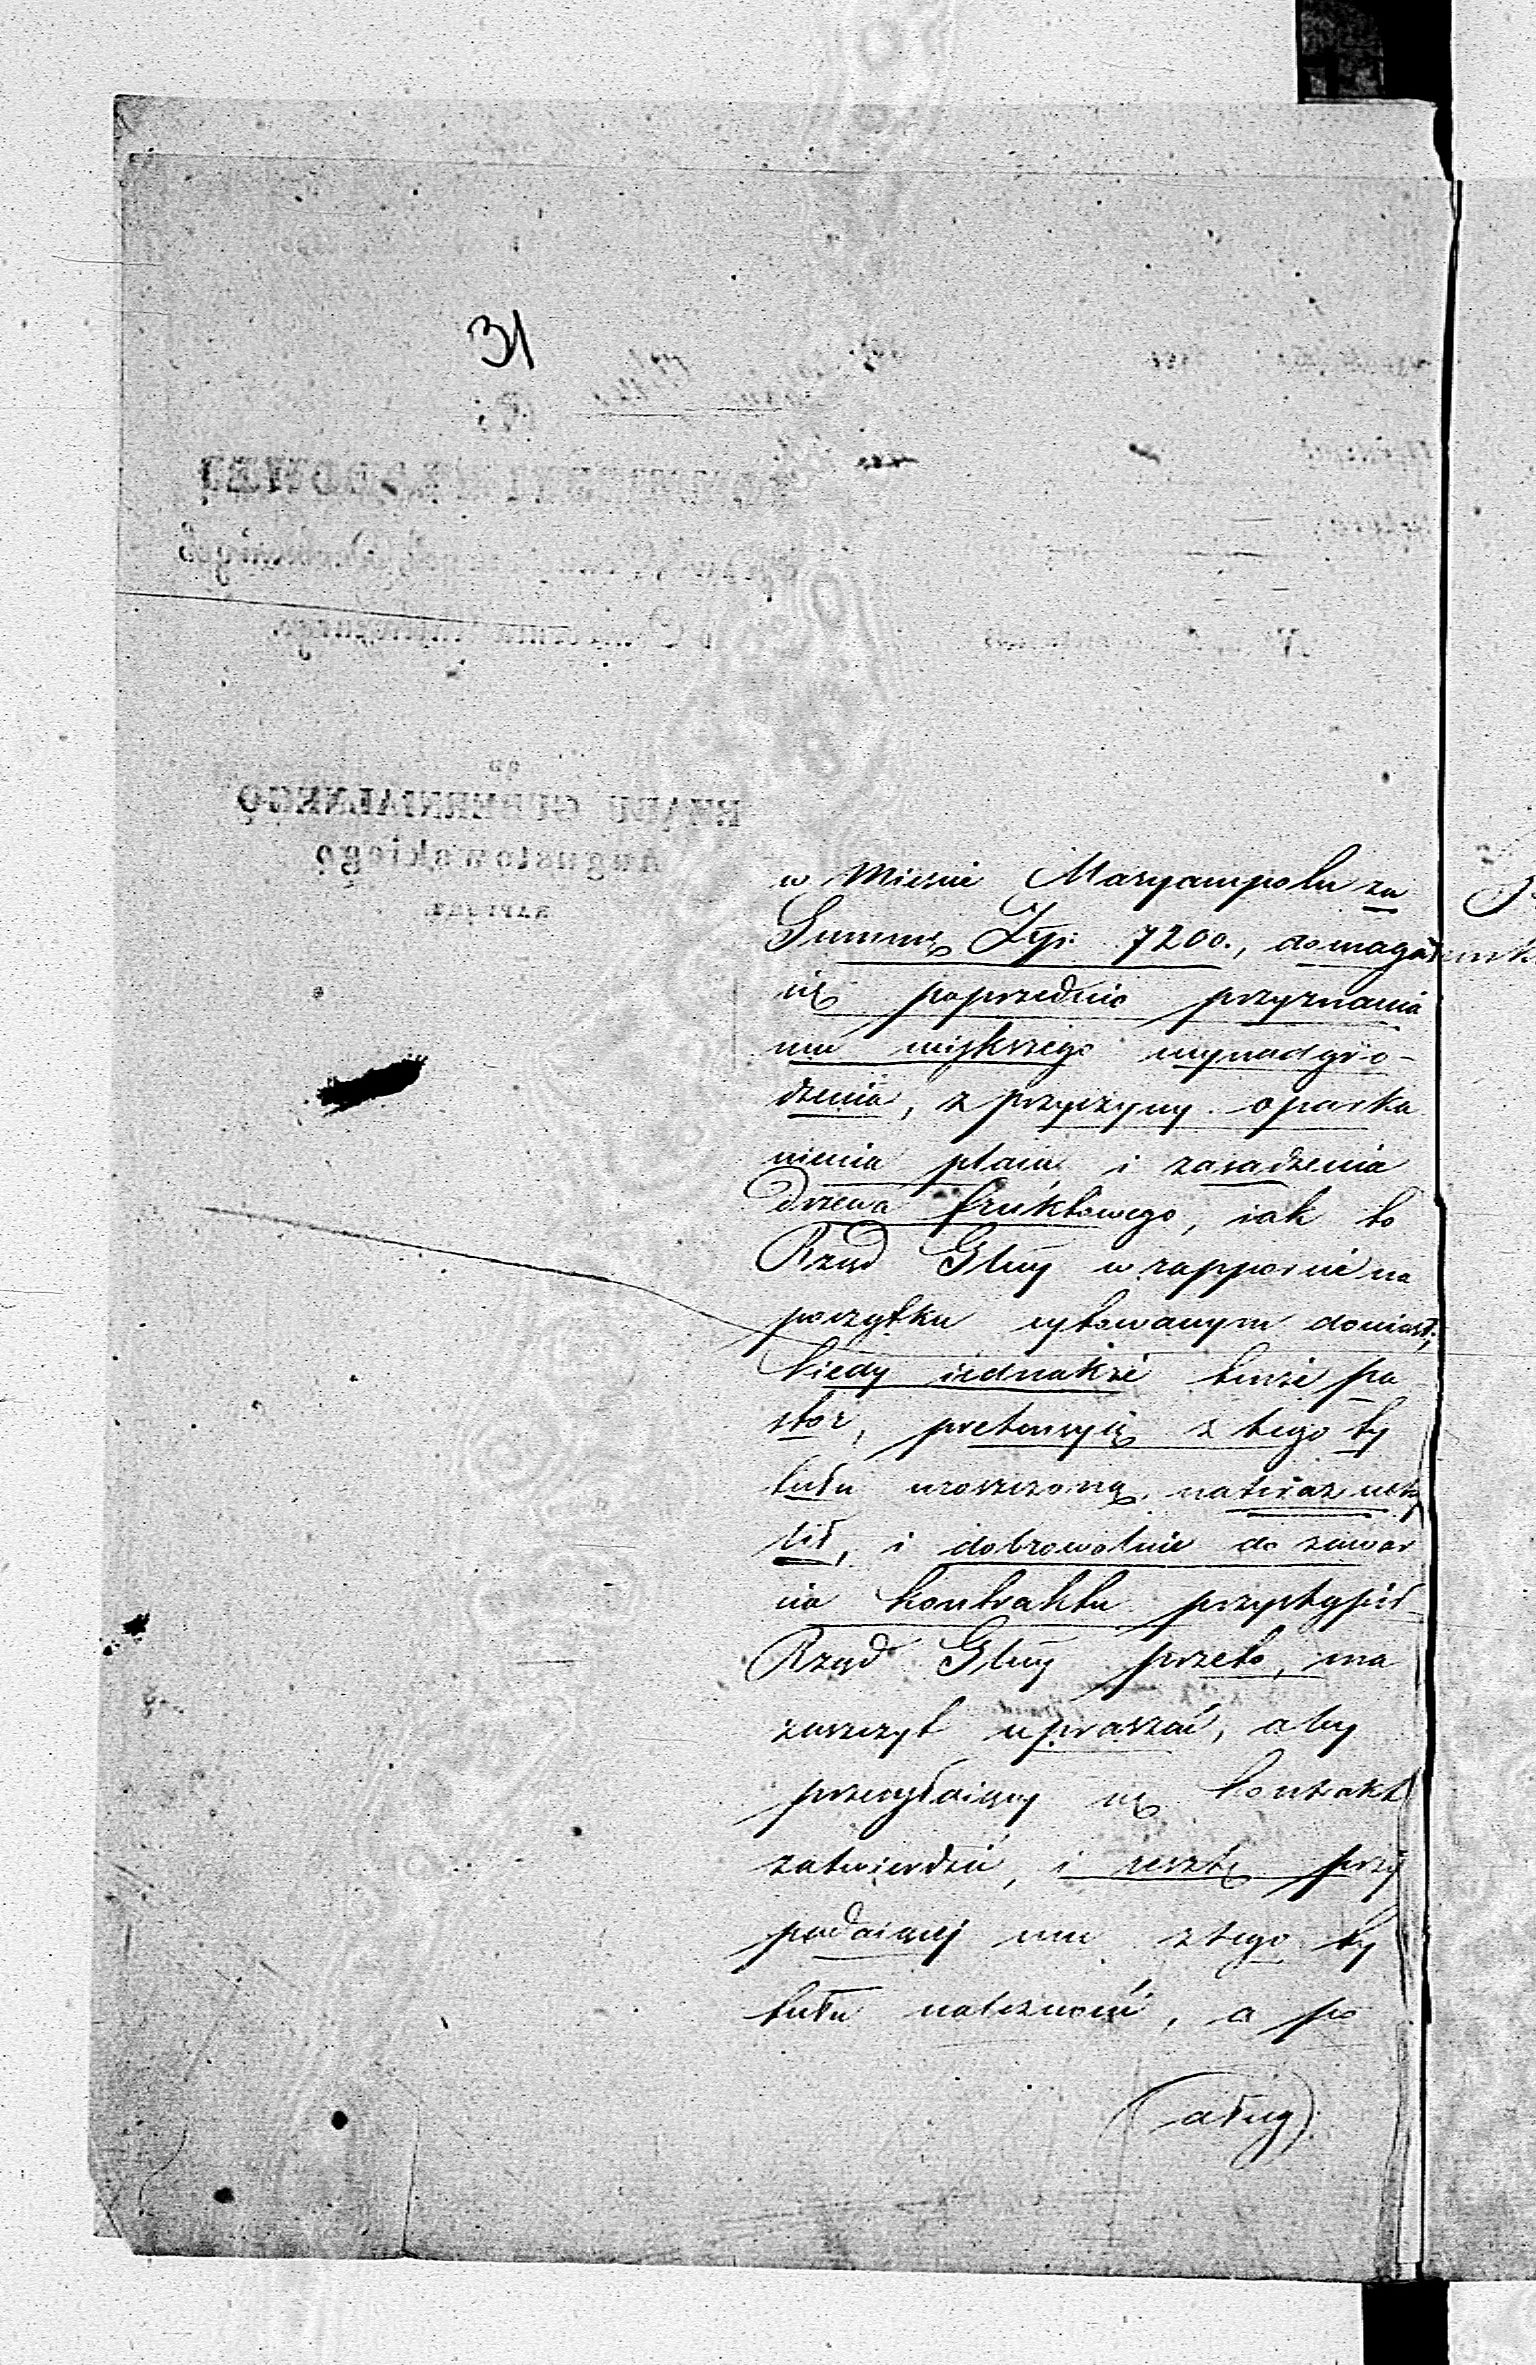 31
w Mieście Maryampolu za
Summę Złp: 7200., domagał
się poprzednio przyznania
mu większego wynadgro-
dzenia, z przyczyny oparka
nienia placu i zasadzenia
drzewa fruktowego, iak to
Rząd Gbny w rapporcie na
początku cytowanym doniosł;
kiedy iednakże tenże pa
stor, pretensyią z tego ty
tułu uroszczoną,
i dobrowolnie do zawar
cia kontraktu przystąpił
Rząd Gbny przeto, ma
zaszczyt upraszać, aby
przesyłaiący się kontrakt
zatwierdzić, i resztę przy
padaiącej mu z tego ty
tułu należności, a po